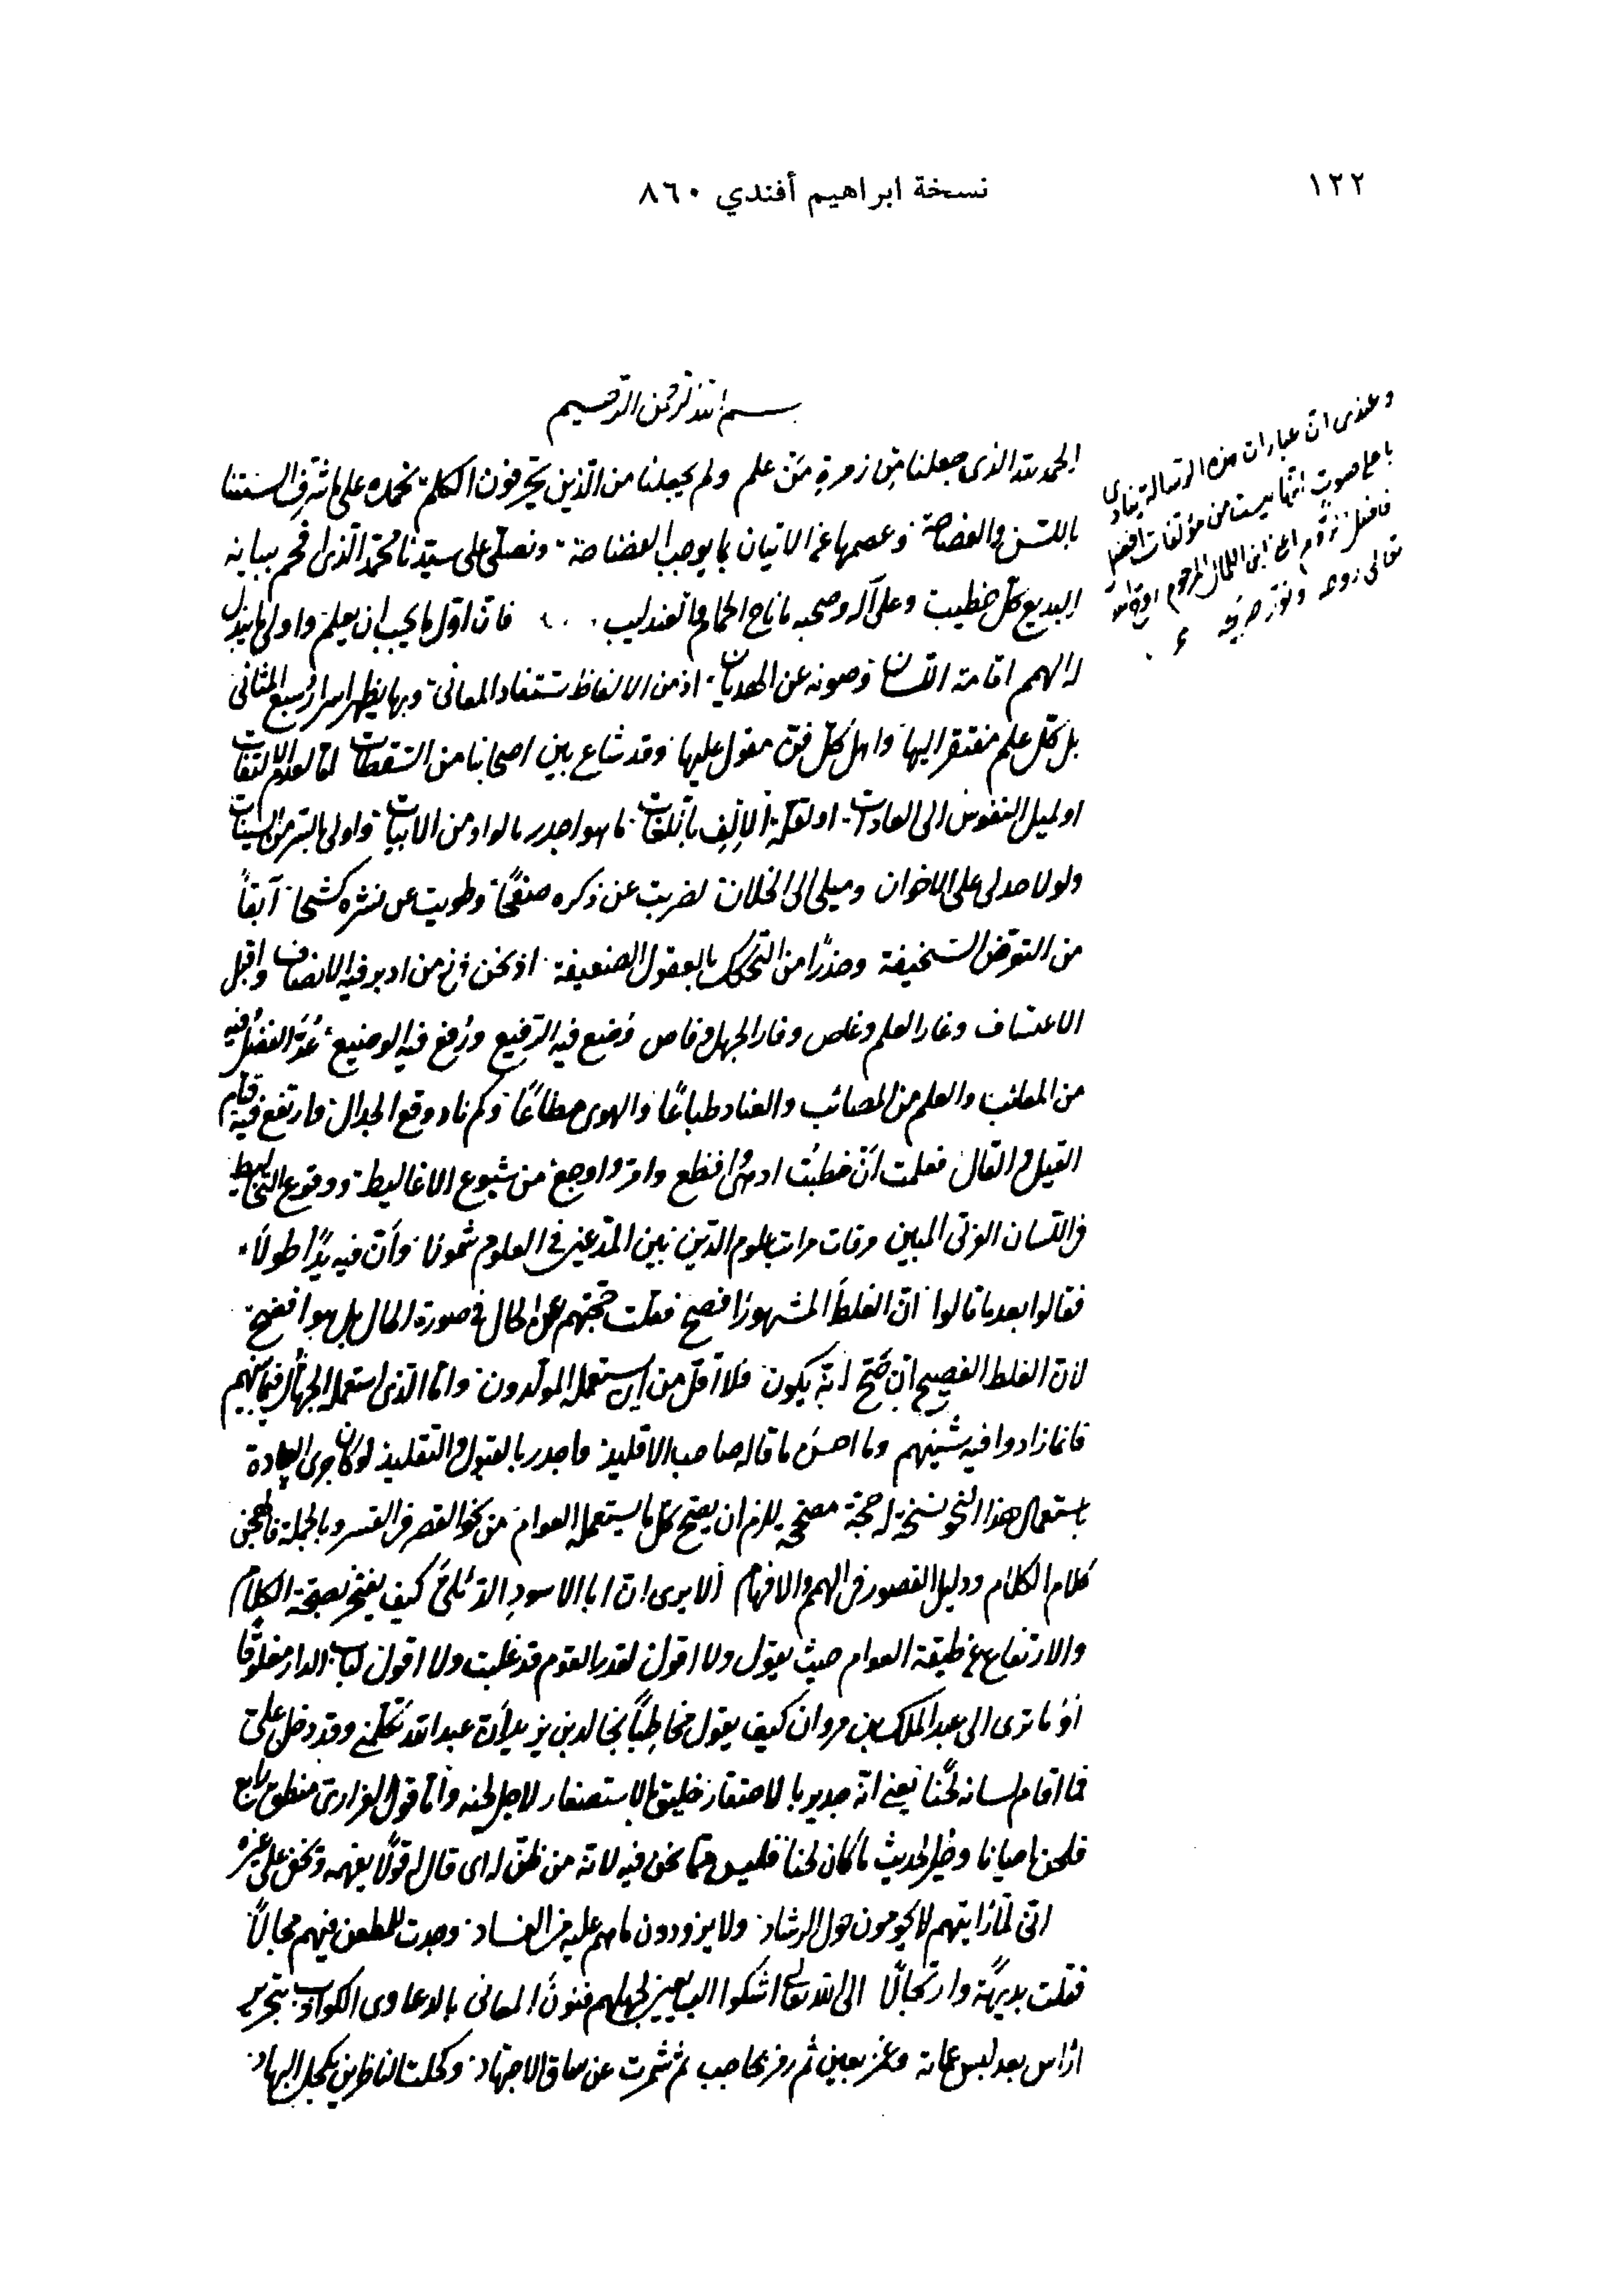 ١٢٢
نسخة ابراهيم أفندي ٨٦٠
بسم الله الرحمن الرحيم
الحمد لله الذى جعلنا من زمرة من علم ولم يجعلنا من الذين يحرفون الكلم نحمده على ما شرف السنتنا
باللسن والفصاحة وعصمها عن الاتيان بما يوجب الفضاحة ونصلى على سيدنا محمد الذى افحم ببيانه
البديع كل خطيب وعلى آله وصحبه ما ناح الحمام والعندليب فان اول ما يجب ان يعلم واولى ما يبذل
له الهمم اقامة اللسان وصونه عن الهذيان اذ من الالفاظ تستفاد المعانى وبها يظهر اسرار سبع المثانى
بل كل علم مفتقر اليها واهل كل فن معول عليها وقد شاع بين اصحابنا من السقطات اما لعدم الالتفات
او لميل النفوس الى العادات او لقلة الإلف باللغات ما هو اجدر بالواد من البنات واولى بالستر من السيئات
ولولا حدبى على الاخوان وميلى الى الخلان لضربت عن ذكره صفحًا وطويت عن نشره كشحا آبقاً
من السخيفة وحذرًا من التحكك بالعقول الضعيفة اذ نحن فى زمن ادبر فيه الانصاف واقبل
الاعتساف وغار العلم وغاص وفار الجهل وفاض وُضع فيه الرفيع ورُفع فيه الوضيع عُدّ الفضل فيه
من المعائب والعلم من المصائب والعناد طباعًا والهوى مطاعًا وكم ناد وقع الجدال وارتفع فيه قتام
القيل والقال فعلمت أن خطبًا ادهى وافظع وامرّ واوجع من شيوع الاغاليط ووقوع التخاليط
فى اللسان العربى المبين مرقات مراتب علوم الدين بين المدعين فى العلوم شمولا وأن فيه يدًا طولًا
فقالوا بعد ما قالوا ان الغلط المشهور افصح فقلت حجتهم المحال فى صورة الحال بل هو افضح
لان الغلط الفصيح ان صح انه يكون فلا اقل من ان يستعمله المولدون واما الذى استعمله الجهال فيما بينهم
فانما زادوا فيه شينهم وما احسن ما قاله صاحب الاقليد واجدر بالقبول والتقليد لو كان جرى العادة
باستعمال هذا النحو نسخة له حجة مصححة يلزم ان يصح كل ما يستعمله العوام من نحو القصر فى القسر وبالجملة فاللحن
كلام الكلام ودليل القصور فى الهمم والافهام ألا يرى ان ابا الاسود الدئلى كيف يفتخر بصحة الكلام
والارتفاع عن طبقة العوام حيث يقول ولا اقول لقدر القوم قد غليت ولا اقول لباب الدار مغلوق
أو ما ترى الى عبد الملك بن مروان كيف يقول مخاطبًا بخالد بن يزيد أفى عبد الله تكلمنى وقد دخل على
فما اقام لسانه لحنًا يعنى انه جدير بالاحتقار خليق بالاستصغار لاجل لحنه وأما قول الفزارى منطق رائع
وتلحن احيانا وخير الحديث ما كان لحنا فليس مما نحن فيه لانه من لحن له اى قال له قولا يفهمه ويخفى على غيره
انى لما رايتهم لا يحومون حول الرشاد ولا يزودون ما هم عليه من الفساد وجدت للطعن فيهم مجالًا
فقلت بديهة وارتجالًا الى الله تعالى اشكوا لجهلهم فنون المعانى بالدعاوى الكواذب بتحرير
اراس بعد لبس عمامة وغمز بعين ثم رمز بحاجب ثم شمرت عن ساق الاجتهاد وكحلت الناظرين بكحل السهاد
وعندى ان عبارات هذه الرسالة ينادى
باعلى صوت انها ليست من مؤلفات افضل
ابن الكمال المرحوم
تعالى روحه ونور ضريحه